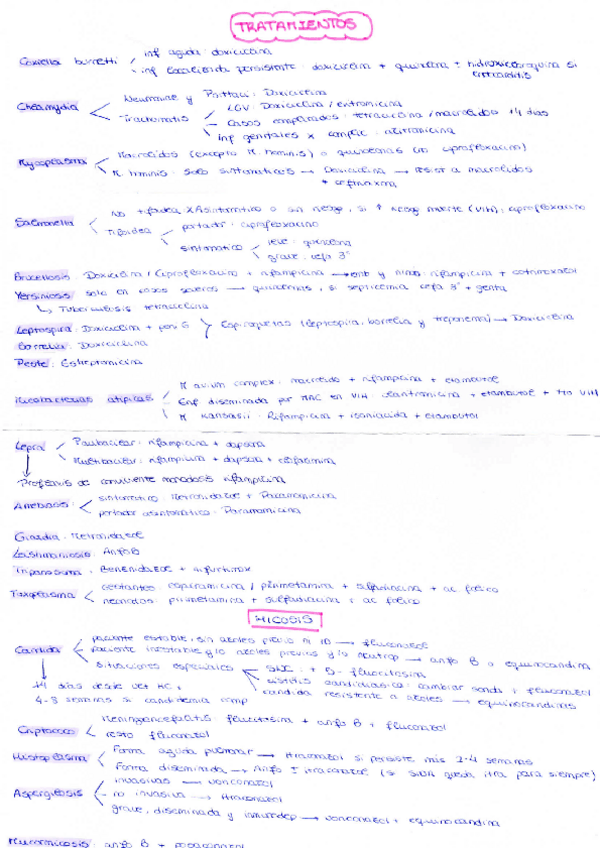 TRATAMIENTOS
Coxiella burnetti inf aguda: doxiciclina
inf localizada persistente: doxiciclina + quinolona + hidroxicloroquina si endocarditis
Chlamydia Neumoniae y Psittaci: Doxiciclina
Trachomatis LGV Doxiciclina / eritromicina
Casos complicados: tetraciclina / macrolidos +4 dias
inf genitales x complic: azitromicina
Mycoplasma Macrolidos (excepto M. hominis) o quinolonas (no ciprofloxacino)
M. hominis: solo sintomaticos → Doxiciclina → resist a macrolidos
Salmonella No tifoidea x Asintomatico o sin riesgo, si ↑ riesgo muerte (VIH): ciprofloxacino
Tifoidea portador: ciprofloxacino
sintomatico leve: quinolona
grave: cefa 3º
Brucellosis Doxiciclina / Ciprofloxacino + rifampicina → emb y niños: rifampicina + cotrimoxazol
Yersiniosis solo en casos severos → quinolonas, si septicemia cefa 3º + genta
↳ Tuberculosis tetraciclina
Leptospira: Doxiciclina + pen G Espiroquetas (leptospira, borrelia y treponema) → Doxiciclina
Borrelia: Doxiciclina
Peste: Estreptomicina
Micobacterias atipicas M avium complex: macrolido + rifampicina + etambutol
Enf diseminada por MAC en VIH: claritromicina + etambutol + tto VIH
M Kansasii: Rifampicina + isoniacida + etambutol
Lepra Paucibacilar: rifampicina + dapsona
Multibacilar: rifampicina + dapsona + clofacimina
Profilaxis de conviviente monodosis rifampicina
Amebiasis: sintomatico: Metronidazol + Paromomicina
portador asintomatico: Paromomicina
Giardia: Metronidazol
Leishmaniosis: Anfo B
Tripanosoma: Benznidazol + nifurtimox
Toxoplasma gestantes: espiramicina / pirimetamina + sulfadiacina + ac folico
neonatos: pirimetamina + sulfadiacina + ac folico
MICOSIS
Candida paciente estable, sin azoles previo ni ID → fluconazol
paciente inestable y/o azoles previos y/o neutrop → anfo B o equinocandina
situaciones especiales SNC: + 5-flucitosina
cistitis candidiasica: cambiar sonda + fluconazol
candida resistente a azoles → equinocandinas
14 dias desde ult HC,
4-8 semanas si candidemia comp
Criptococo Meningoencefalitis flucitosina + anfo B + fluconazol
resto fluconazol
Histoplasma Forma aguda pulmonar → itraconazol si persiste más 2-4 semanas
Forma diseminada → Anfo + itraconazol (si SIDA queda itra para siempre)
Aspergilosis invasivas → voriconazol
no invasiva → itraconazol
grave, diseminada y inmunodep → voriconazol + equinocandina
Mucormicosis: anfo B + posaconazol